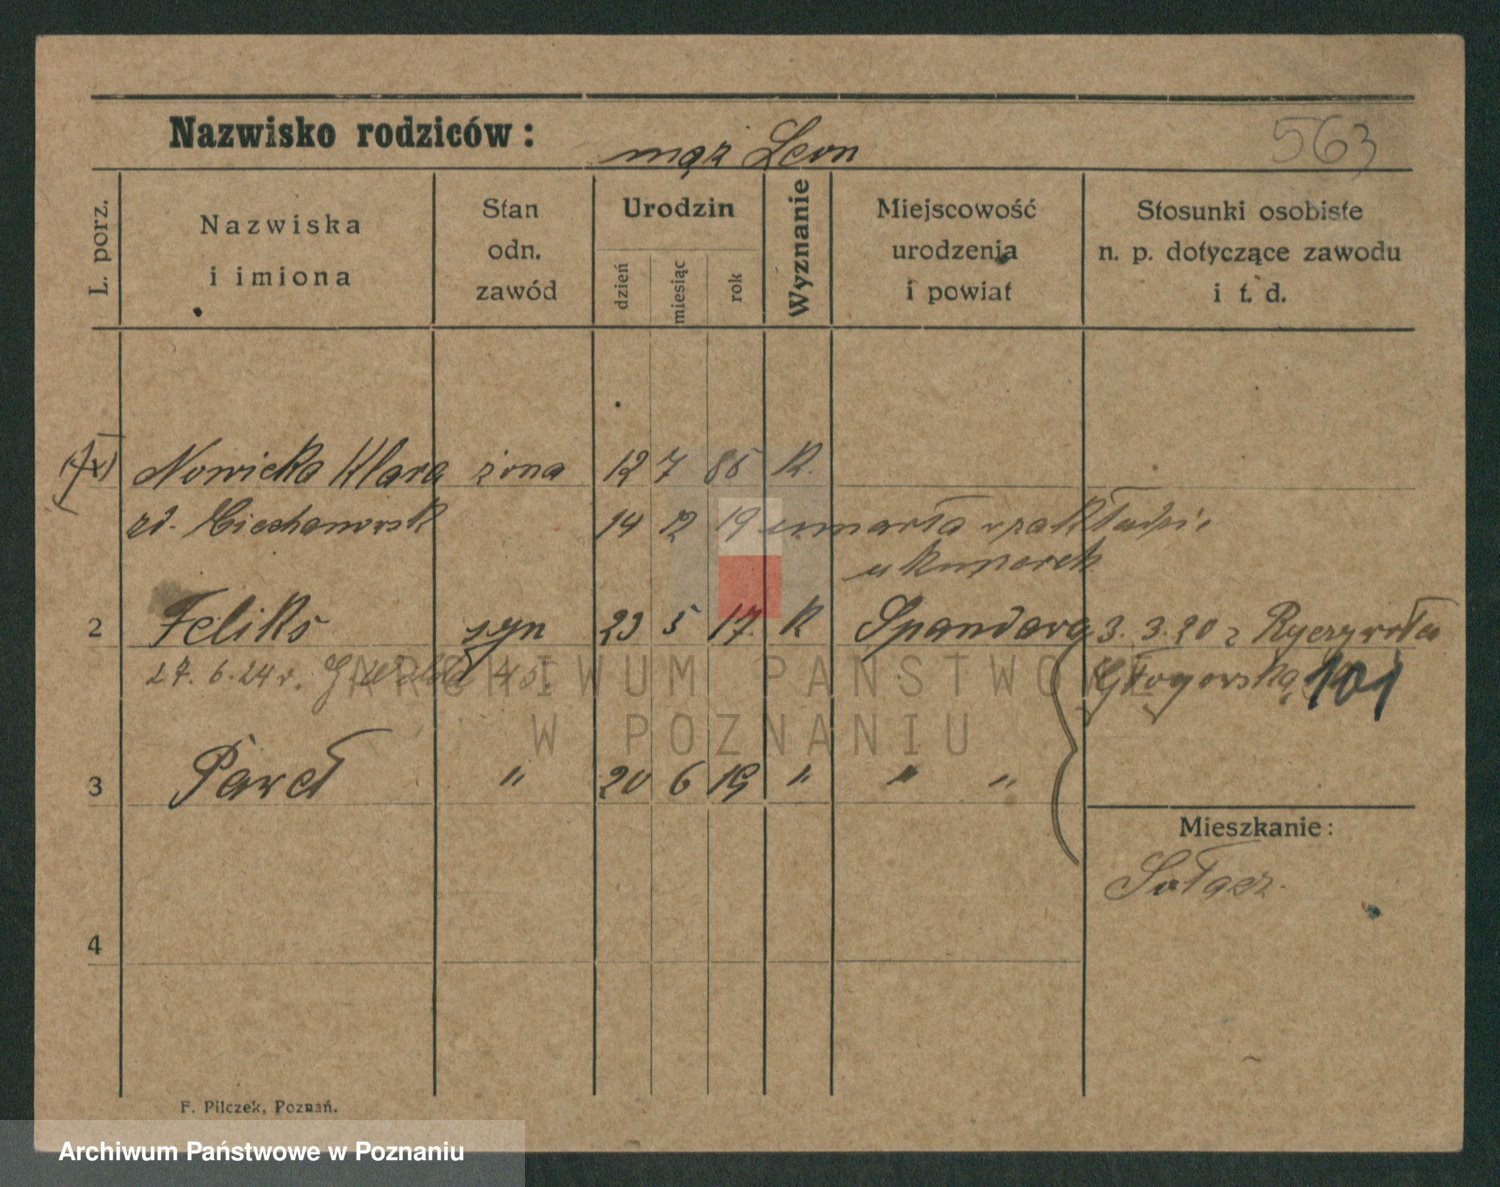 Nazwisko rodziców: mąż Leon 563
L. porz.
Nazwiska
i imiona
Stan
odn.
zawód
Urodzin
dzień
miesiąc
rok
Wyznanie
Miejscowość
urodzenia
i powiat
Stosunki osobiste
n. p. dotyczące zawodu
i t. d.
Nowicka Klara żona 12 7 85 K.
zd. Ciechanowsk 14 12 19 umarła w zakładzie
2 Feliks syn 23 5 17. K Spandawa 3. 3. 20 z Ryczywołu
27. 6. 24 r.
Głogowska 101
3 Paweł " 20 6 19 " " "
Mieszkanie:
Sołacz.
4
F. Pilczek, Poznań.
ARCHIWUM PAŃSTWOWE
W POZNANIU
Archiwum Państwowe w Poznaniu